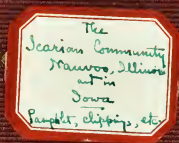 The
Icarian Community
Nauvoo, Illinois
and in
Iowa
Pamphlets, clippings, etc.